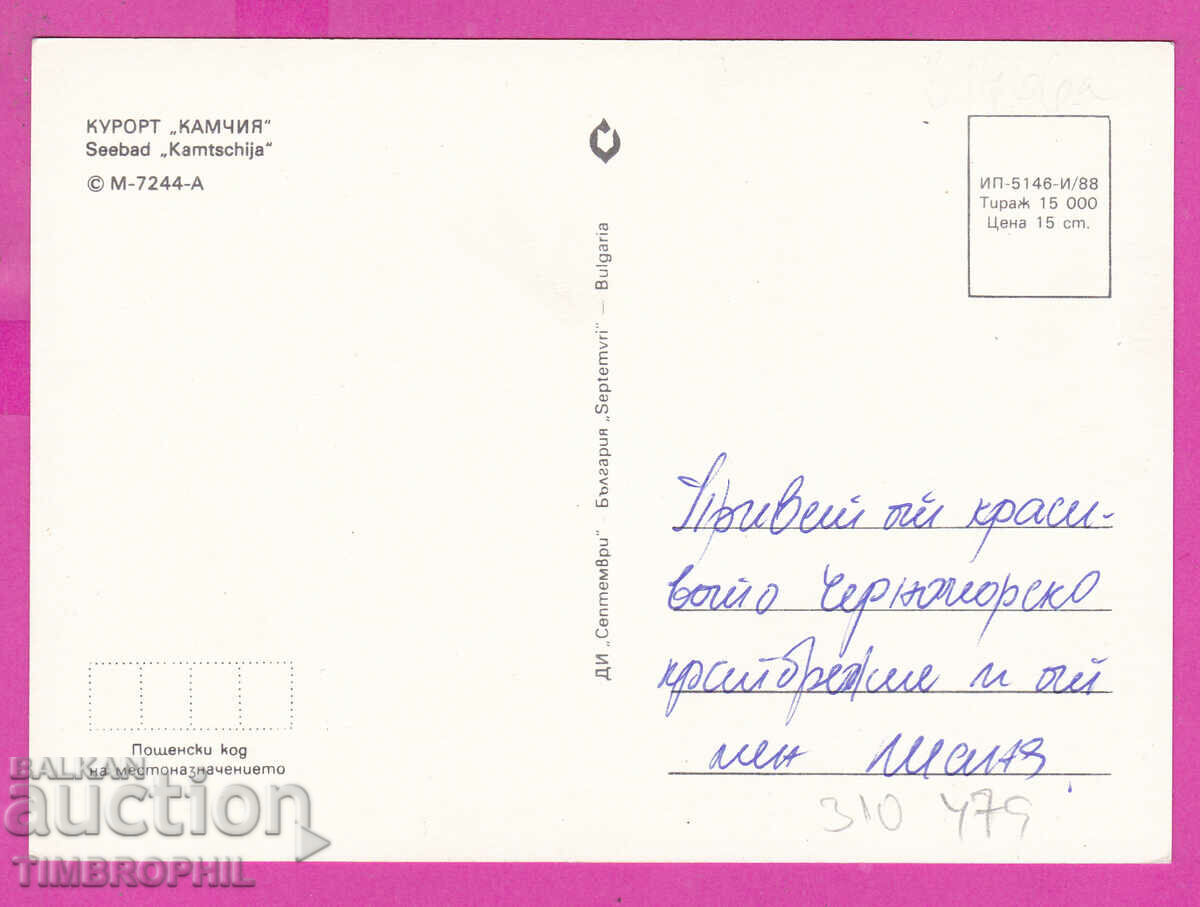 КУРОРТ „КАМЧИЯ“
Seebad „Kamtschija“
© М-7244-А
ДИ „Септември“ - България „Septemvri“ — Bulgaria
ИП-5146-И/88
Тираж 15 000
Цена 15 ст.
Привет от краси-
вото Черноморско
крайбрежие и от
мен
Пощенски код
на местоназначението
310 479
BALKAN
auction
TIMBROPHIL